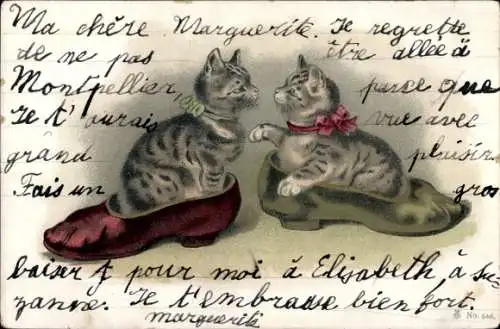 Ma chère Marguerite. Je regrette
de ne pas être allée à
Montpellier parce que
Je t'aurais vue avec
grand plaisir
Fais un gros
baiser pour moi à Elisabeth, à su-
zanne. Je t'embrasse bien fort.
marguerite
No. 546.